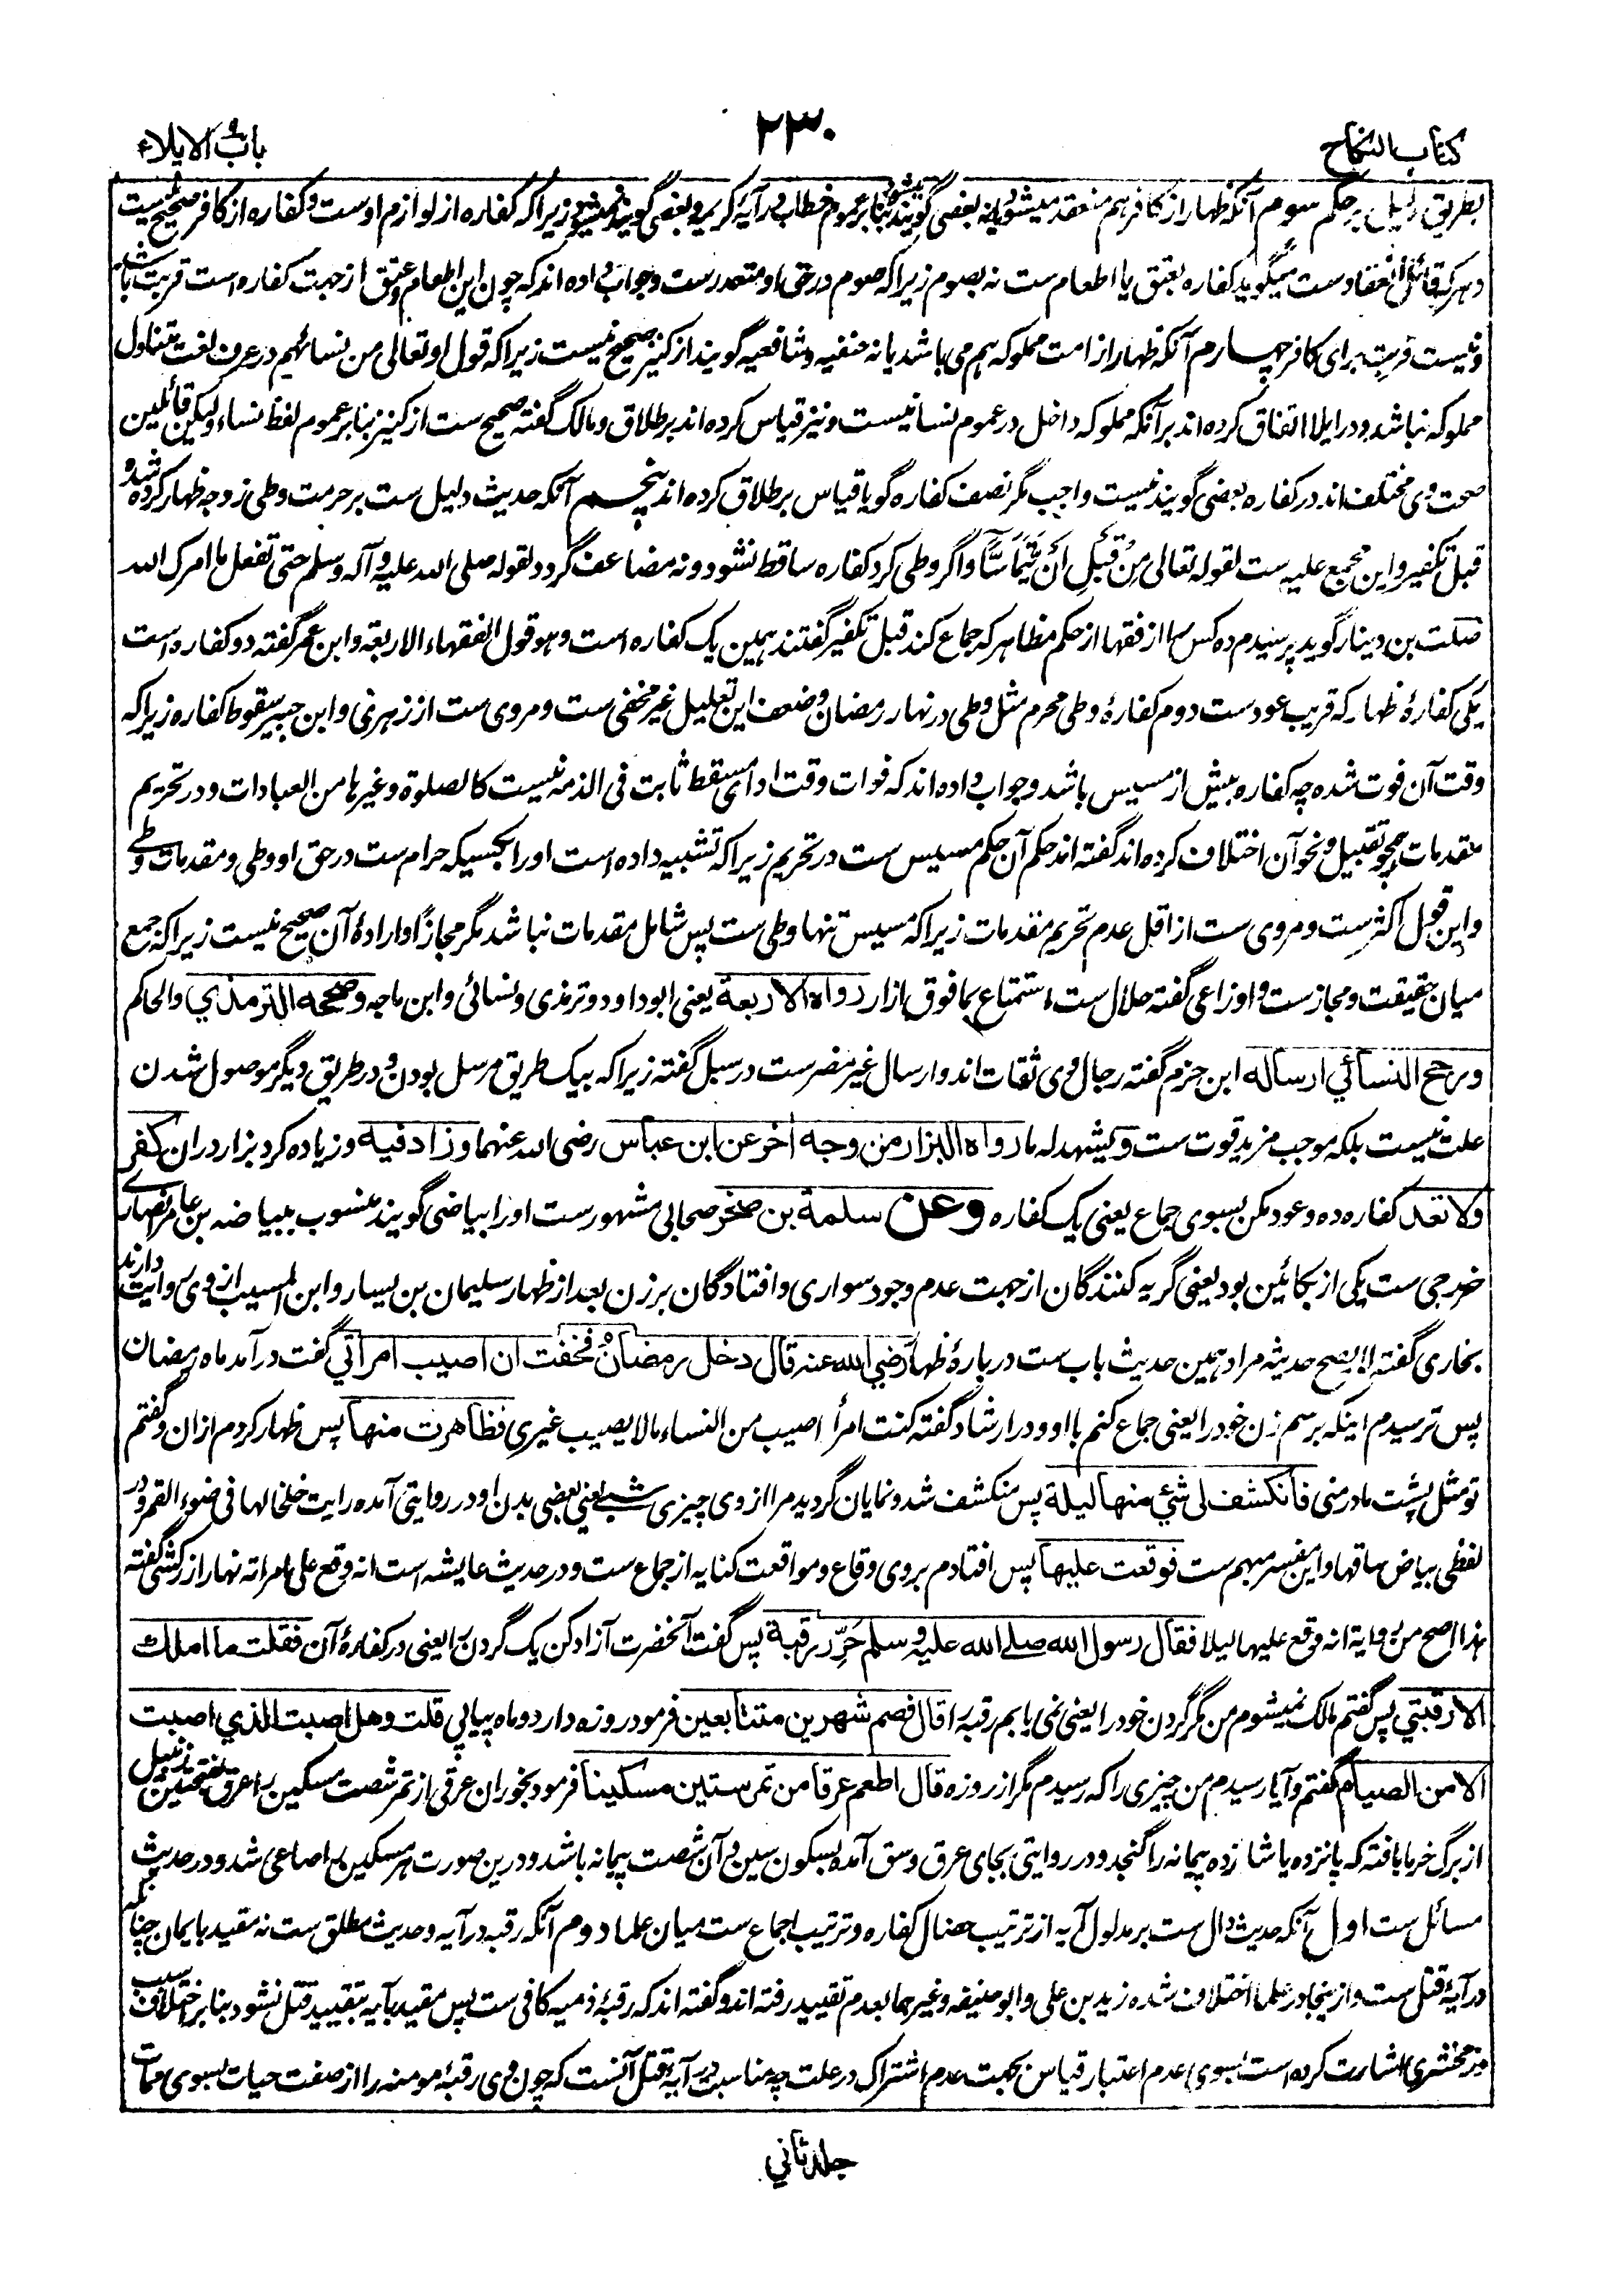 کتاب النکاح
۲۳۰
باب الایلاء
بطریق دلیل بر حکم سوم آنکه ظهار از کافر هم منعقد میشود یا نه بعضی گویند میشود بنا بر عموم خطاب در آیه کریمه و بعضی گویند نمیشود زیرا که کفاره از لوازم اوست و کفاره از کافر صحیح نیست
و هرکه قائل انعقاد ست میگوید کفاره بعتق یا اطعام ست نه بصوم زیرا که صوم در حق او متعذر ست و جواب داده اند که چون این اطعام و عتق از جهت کفاره است قربت باشد
و نیست قربت برای کافر چهارم آنکه ظهار از امت مملوکه هم می باشد یا نه حنفیه و شافعیه گویند از کنیز صحیح نیست زیرا که قول او تعالی من نسائهم در عرف لغت متناول
مملوکه نباشد و در ایلا اتفاق کرده اند بر آنکه مملوکه داخل در عموم نسا نیست و نیز قیاس کرده اند بر طلاق و مالک گفته صحیح ست از کنیز بنا بر عموم لفظ نساء و لیکن قائلین
صحت وی مختلف اند در کفاره بعضی گویند نیست واجب مگر نصف کفاره گویا قیاس بر طلاق کرده اند پنجم آنکه حدیث دلیل ست بر حرمت وطی زوجه ظهار کرده شده
قبل تکفیر و این مجمع علیه ست لقوله تعالی مِنْ قَبْلِ اَنْ يَّتَمَاسَّا و اگر وطی کرد کفاره ساقط نشود و نه مضاعف گردد لقوله صلی الله علیه و آله وسلم حتی تفعل ما امرک الله
صلت بن دینار گوید پرسیدم ده کس را از فقها از حکم مظاهر که جماع کند قبل تکفیر گفتند همین یک کفاره است و هو قول الفقهاء الاربعة و ابن عمر گفته دو کفاره است
یکی کفارۀ ظهار که قریب عود ست دوم کفارۀ وطی محرم مثل وطی در نهار رمضان و ضعف این تعلیل غیر مخفی ست و مروی ست از زهری و ابن جبیر سقوط کفاره زیرا که
وقت آن فوت شده چه کفاره پیش از مسیس باشد و جواب داده اند که فوات وقت ادای مسقط ثابت فی الذمه نیست کالصلوة و غیرها من العبادات و در تحریم
مقدمات همچو تقبیل و نحو آن اختلاف کرده اند گفته اند حکم آن حکم مسیس ست در تحریم زیرا که تشبیه داده است او را بکسیکه حرام ست در حق او وطی و مقدمات وطی
و این قول اکثر ست و مروی ست از اقل عدم تحریم مقدمات زیرا که مسیس تنها وطی ست پس شامل مقدمات نباشد مگر مجازاً و ارادۀ آن صحیح نیست زیرا که جمع
میان حقیقت و مجاز ست و اوزاعی گفته حلال ست استمتاع بما فوق ازار رواه الاربعة یعنی ابوداود و ترمذی و نسائی و ابن ماجه وصححه الترمذي والحاکم
ورجح النسائي ارساله ابن حزم گفته رجال وی ثقات اند و ارسال غیر مضر ست در سبل گفته زیرا که بیک طریق مرسل بودن و در طریق دیگر موصول شدن
علت نیست بلکه موجب مزید قوت ست ویشهد له ما رواه البزار من وجه اخر عن ابن عباس رضی الله عنهما وزاد فيه و زیاده کرد بزار در ان کفر
ولا تعد کفاره ده و عود مکن بسوی جماع یعنی یک کفاره وعن سلمة بن صخر صحابی مشهور ست او را بیاضی گویند منسوب ببیاضه بن عامر انصاری
خزرجی ست یکی از بکائین بود یعنی گریه کنندگان از جهت عدم وجود سواری و افتادگان بر زن بعد از ظهار سلیمان بن یسار و ابن المسیب از وی روایت دارند
بخاری گفته لا یصح حدیثه مراد همین حدیث باب ست دربارۀ ظهار رضي الله عنه قال دخل رمضان فخفت ان اصيب امرأتي گفت در آمد ماه رمضان
پس ترسیدم اینکه برسم زن خود را یعنی جماع کنم با او و در ارشاد گفته کنت امرأ اصیب من النساء ما لا یصیب غیری فظاهرت منها پس ظهار کردم از ان و گفتم
تو مثل پشت مادر منی فانكشف لی شئ منها ليلة پس منکشف شد و نمایان گردید مرا از وی چیزی شبے یعنی بعضی بدن او در روایتی آمده رایت خلخالها فی ضوء القمر و در
لفظی بیاض ساقها و این مفسر مبهم ست فوقعت عليها پس افتادم بر وی وقاع و مواقعت کنایه از جماع ست و در حدیث عایشه است انه وقع علی امراته نهارا زرکشی گفته
هذا اصح من روایة انه وقع علیها لیلا فقال رسول الله صلے الله علیه وسلم حَرِّر رقبة پس گفت آنحضرت آزاد کن یک گردن را یعنی در کفارۀ آن فقلت ما املك
الا رقبتي پس گفتم مالک نمیشوم من مگر گردن خود را یعنی نمی یابم رقبه را قال فصم شهرين متتابعين فرمود روزه دار دو ماه پیاپی قلت وهل اصبت الذي اصبت
الا من الصيام گفتم و آیا رسیدم من چیزی را که رسیدم مگر از روزه قال اطعم عرقا من تمر ستين مسكينا فرمود بخوران عرقی از تمر شصت مسکین را عرق بفتحتین زنبیل
از برگ خرما بافته که پانزده یا شانزده پیمانه را گنجد و در روایتی بجای عرق وسق آمده بسکون سین و آن شصت پیمانه باشد و درین صورت هر مسکین را صاعی شد و در حدیث
مسائل ست اول آنکه حدیث دال ست بر مدلول آیه از ترتیب خصال کفاره و ترتیب اجماع ست میان علما دوم آنکه رقبه در آیه و حدیث مطلق ست نه مقید بایمان چنانکه
در آیۀ قتل ست و از ینجا در علما اختلاف شده زید بن علی و ابو حنیفه و غیرهما بعدم تقیید رفته اند و گفته اند که رقبۀ ذمیه کافی ست پس مقید بآیه بتقیید قتل نشود بنا بر اختلاف سبب
زمخشری اشارت کرده است بسوی عدم اعتبار قیاس بجهت عدم اشتراک در علت چه مناسبت در آیۀ قتل آنست که چون وی رقبۀ مومنه را از صفت حیات بسوی ممات
جلد ثاني